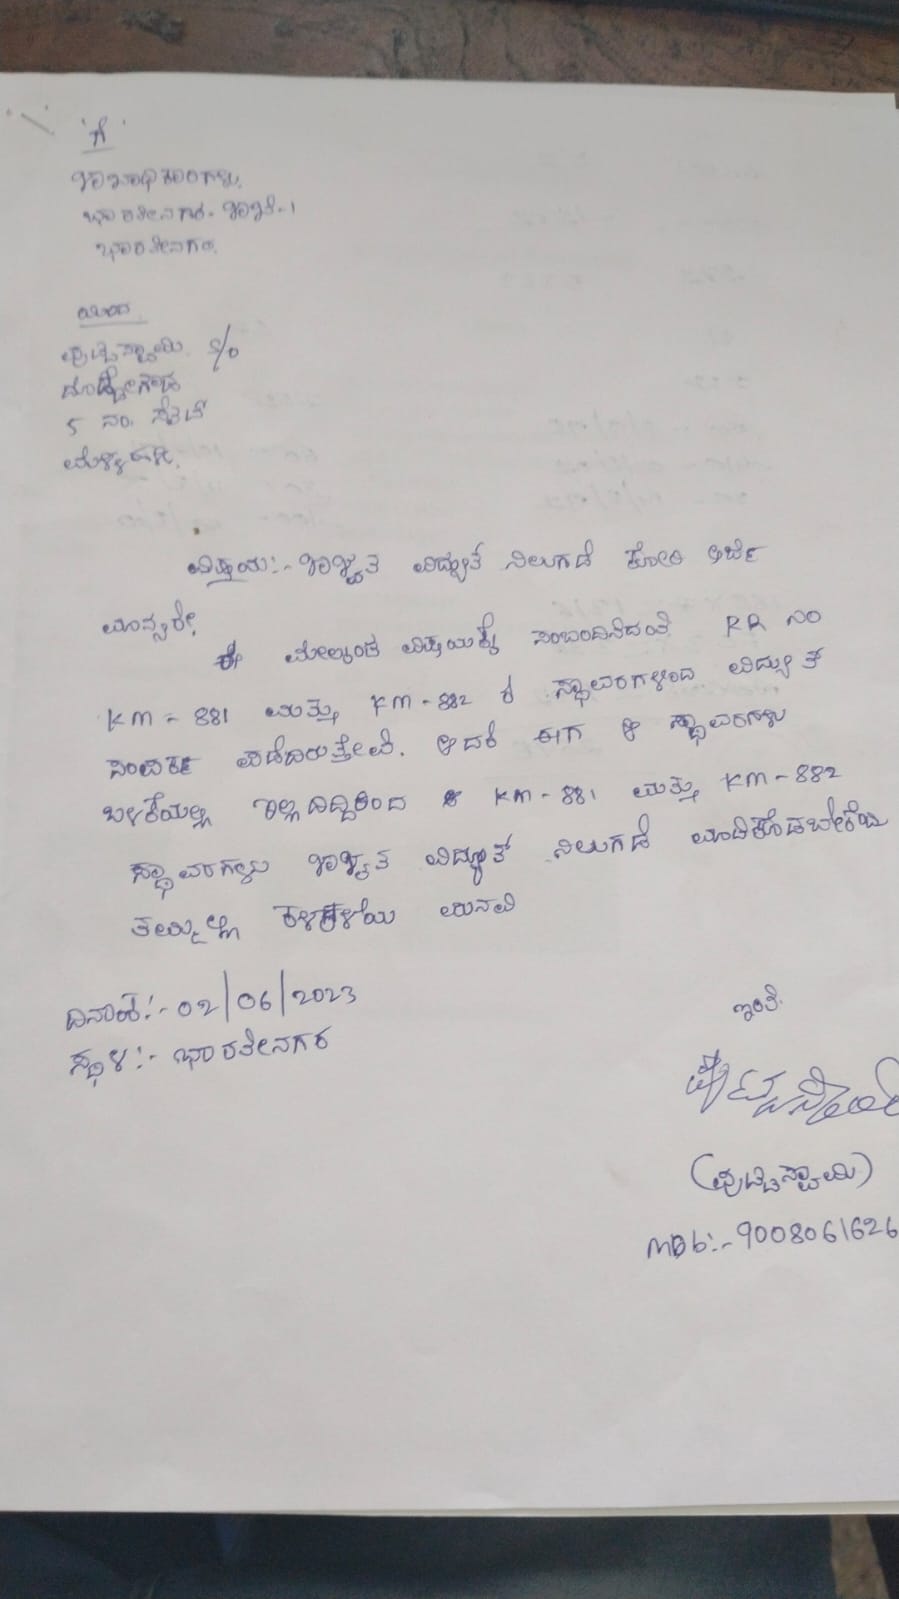 'ಗೆ'
ಶಾಖಾಧಿಕಾರಿಗಳು,
ಭಾರತೀನಗರ- ಶಾಖೆ-1
ಭಾರತೀನಗರ.
ಯಿಂದ,
ಪುಟ್ಟಸ್ವಾಮಿ. S/o
ದೊಡ್ಡೇಗೌಡ
5 ನಂ. ಸೈಟ್
ವಿಷಯ:- ಶಾಶ್ವತ ವಿದ್ಯುತ್ ನಿಲುಗಡೆ ಕೋರಿ ಅರ್ಜಿ
ಮಾನ್ಯರೇ,
ಈ ಮೇಲ್ಕಂಡ ವಿಷಯಕ್ಕೆ ಸಂಬಂದಿಸಿದಂತೆ RR ನಂ
KM-881 ಮತ್ತು KM-882 ರ ಸ್ಥಾವರಗಳಿಂದ ವಿದ್ಯುತ್
ಸಂಪರ್ಕ ಪಡೆದಿರುತ್ತೇವೆ. ಆದರೆ ಈಗ ಆ ಸ್ಥಾವರಗಳು
ಬಳಕೆಯಲ್ಲಿ ಇಲ್ಲದಿದ್ದರಿಂದ KM-881 ಮತ್ತು KM-882
ಸ್ಥಾವರಗಳು ಶಾಶ್ವತ ವಿದ್ಯುತ್ ನಿಲುಗಡೆ ಮಾಡಿಕೊಡಬೇಕೆಂದು
ತಮ್ಮಲ್ಲಿ ಕಳಕಳಿಯ ಮನವಿ
ದಿನಾಂಕ:- 02/06/2023
ಸ್ಥಳ:- ಭಾರತೀನಗರ
ಇಂತಿ.
ಪುಟ್ಟಸ್ವಾಮಿ
(ಪುಟ್ಟಸ್ವಾಮಿ)
MOb:- 9008061626